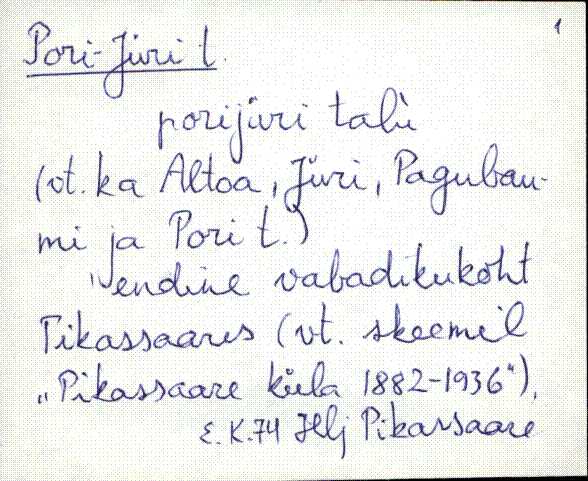 1
Pori-Jüri t.
porijüri talu
(vt. ka Altoa, Jüri, Pagubau-
mi ja Pori t.)
endine vabadikukoht
Pikassaares (vt. skeemil
„Pikassaare küla 1882-1936"),
E.K.74 Hlj Pikassaare